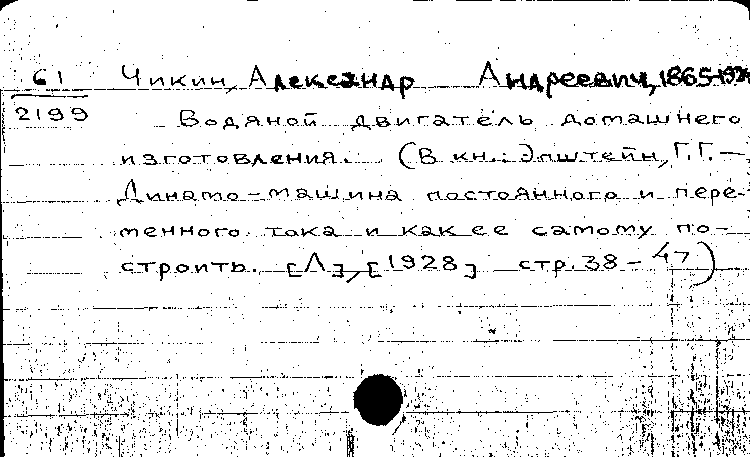 61 Чикин, Александр Андреевич, 1865-1924
2199 Водяной двигатель домашнего
изготовления. (В кн.: Эпштейн, Г.Г. –
Динамо-машина постоянного и пере-
менного тока и как ее самому по-
строить. [Л], [1928] стр. 38 – 47)